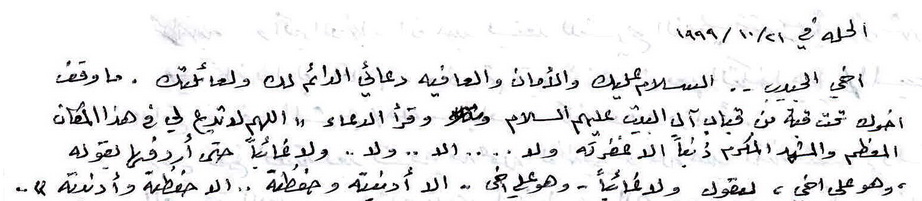 الحله في ٢١ / ١٠ / ١٩٩٩
اخي الحبيب .. السلام عليك والأمان والعافيه دعائي الدائم لك ولعائلتك . ما وقف
اخوك تحت قبة من قباب آل البيت عليهم السلام وقرأ الدعاء " اللهم لا تدع لي في هذا المكان
المعظم والمشهد المكرم ذنباً الا غفرته ولا .... الا .. ولا .. ولا غائباً حتى أردفها بقوله
، وهو علي اخي ، ليقول ولا غائباً - وهو علي اخي .. الا أدنيته وحفظته .. الا حفظته وأدنيته " ..